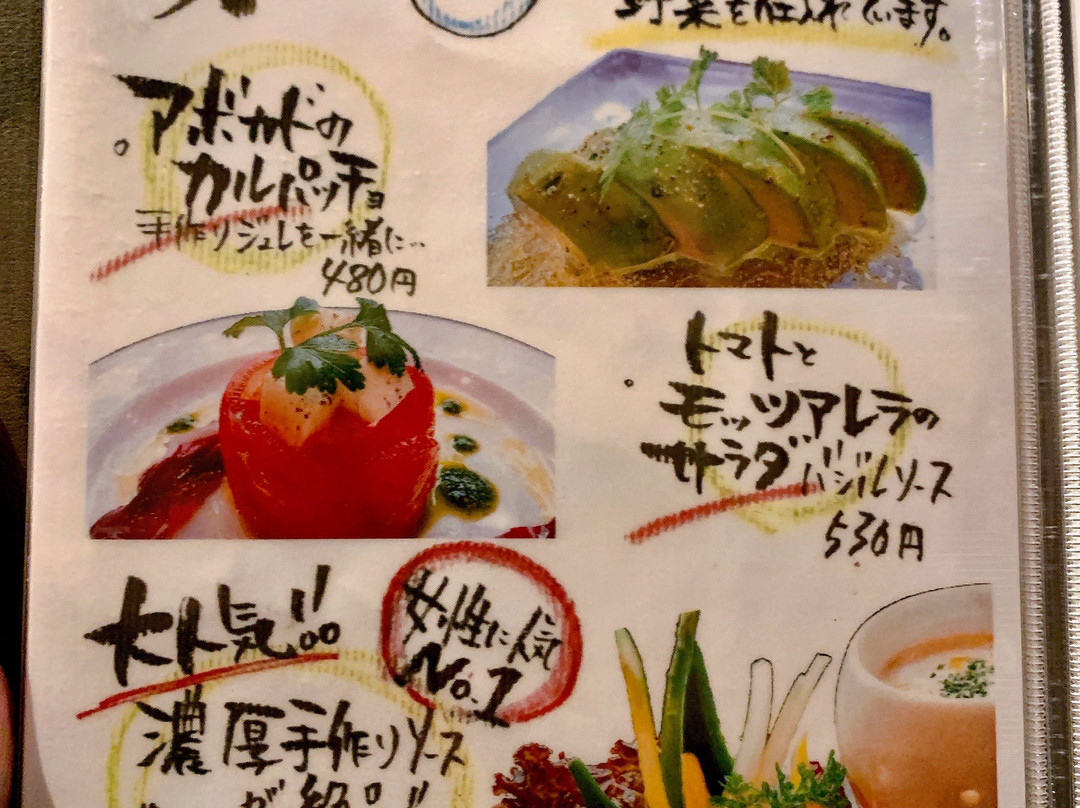 野菜を仕入れています。
アボカドの
カルパッチョ
手作りジュレを一緒に…
480円
トマトと
モッツアレラの
サラダ バジルソース
530円
大人気!!
女性に人気
No.1
濃厚手作りソース
が絶品!!